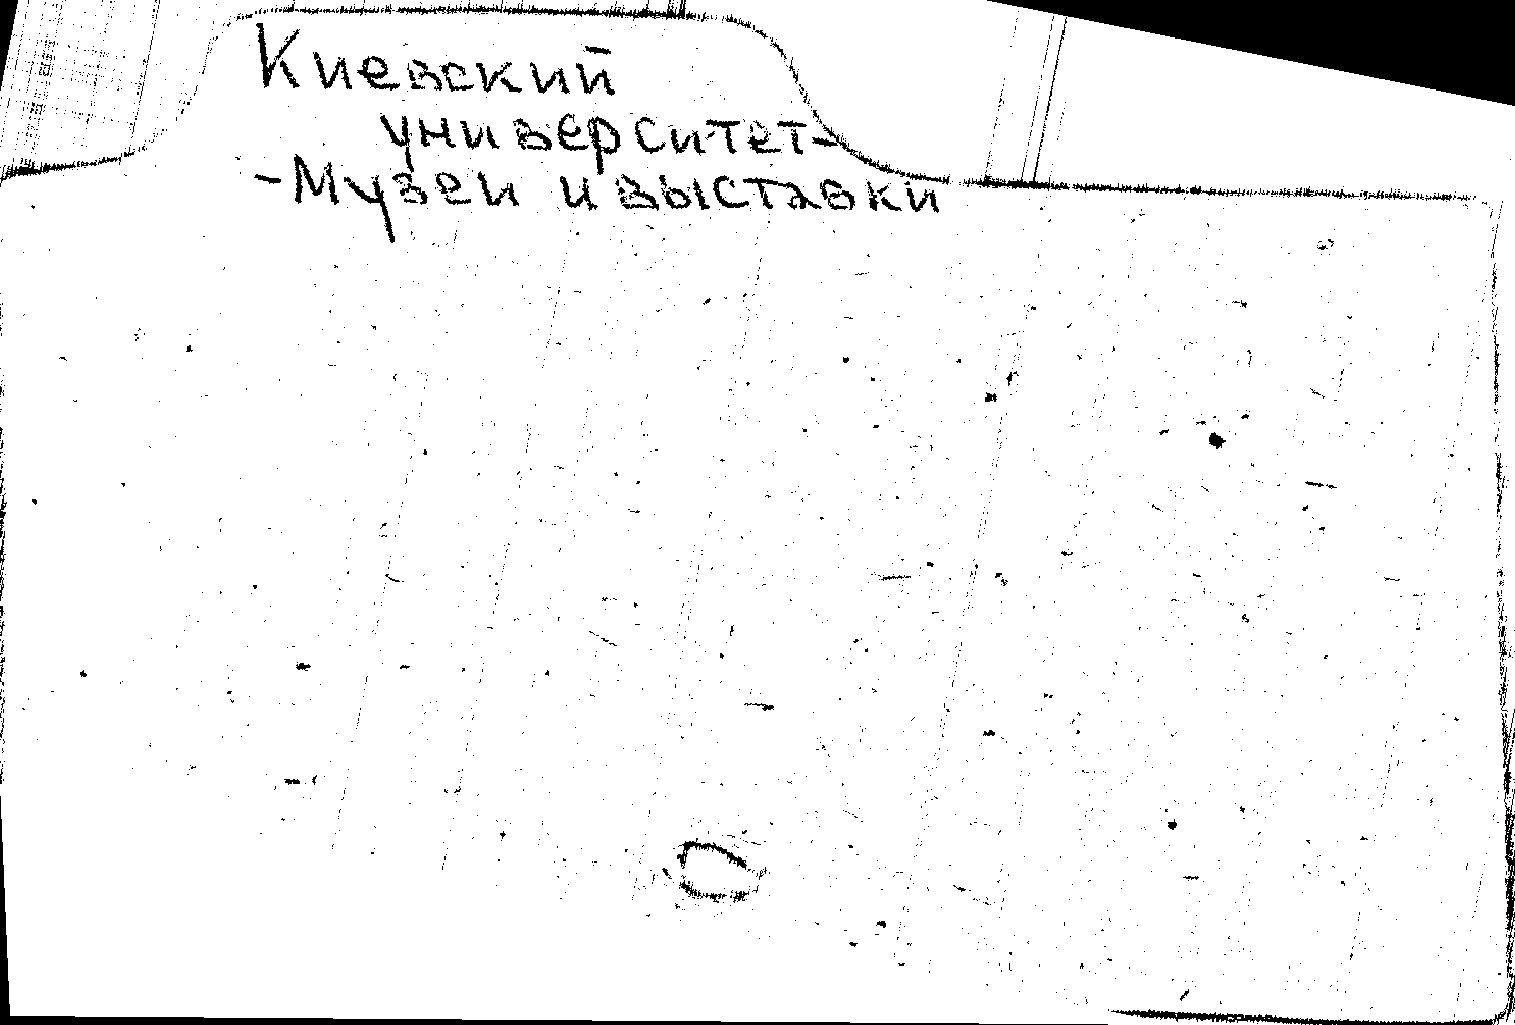 Киевский
университет-
-Музеи и выставки